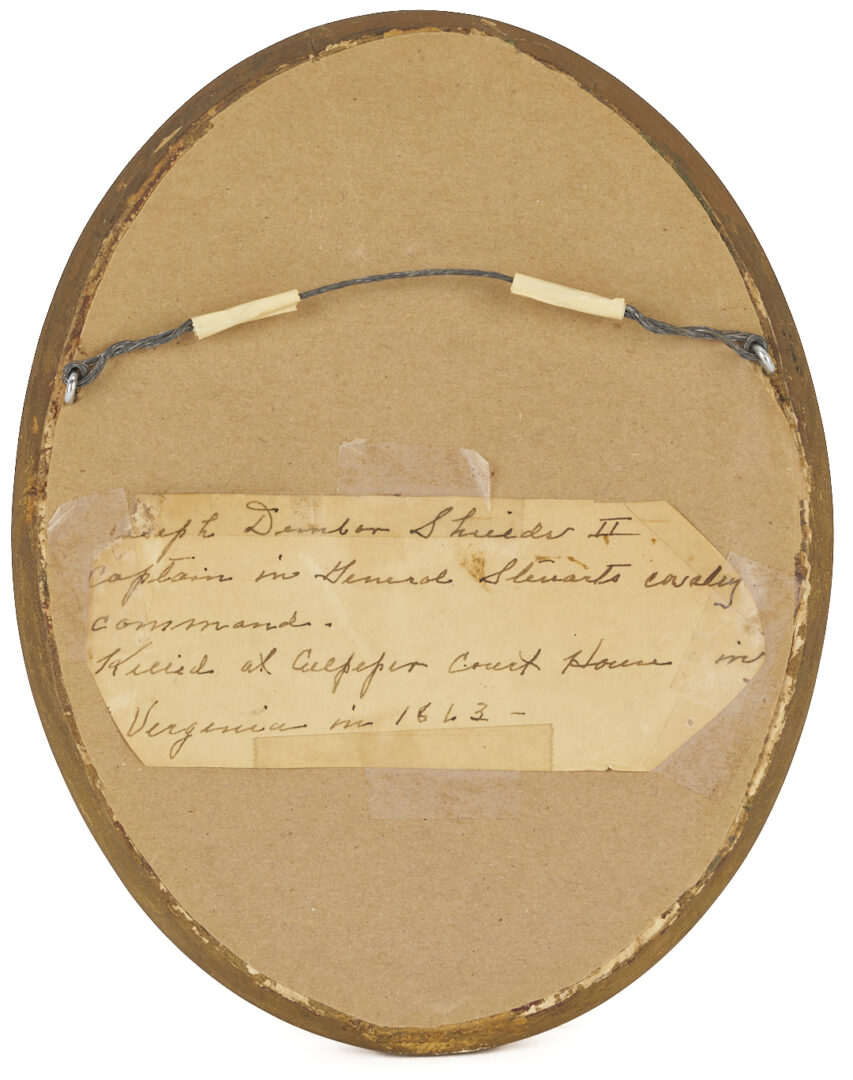 Joseph Dunbar Shields II
Captain in General Steuarts cavalry
command.
Killed at Culpeper Court House in
Virginia in 1863 -